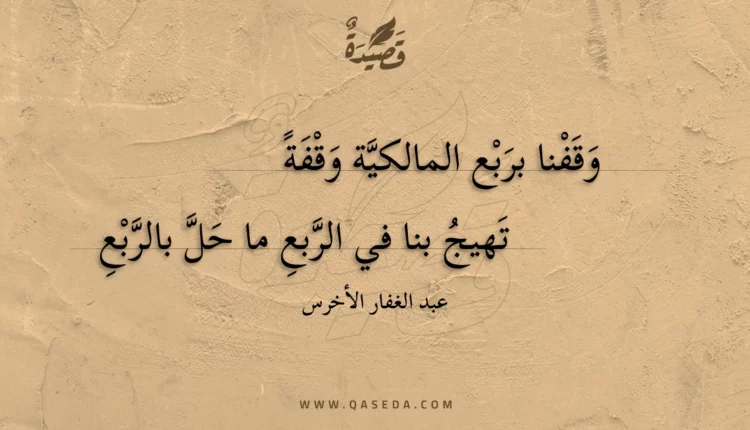 قَصِيدَةٌ
وَقَفْنا برَبْع المالكيَّة وَقْفَةً
تَهيجُ بنا في الرَّبعِ ما حَلَّ بالرَّبْعِ
عبد الغفار الأخرس
WWW.QASEDA.COM